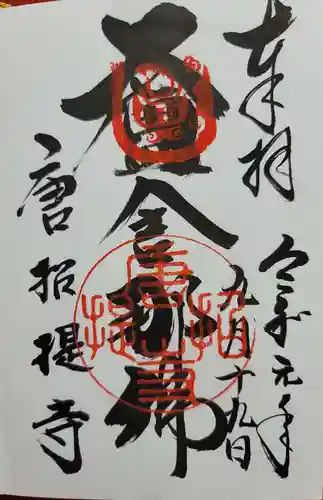 奉拝
令和元年
九月十九日
盧舎那佛
唐招提寺
唐招提寺